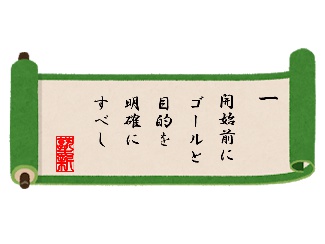 一
開始前に
ゴールと
目的を
明確に
すべし